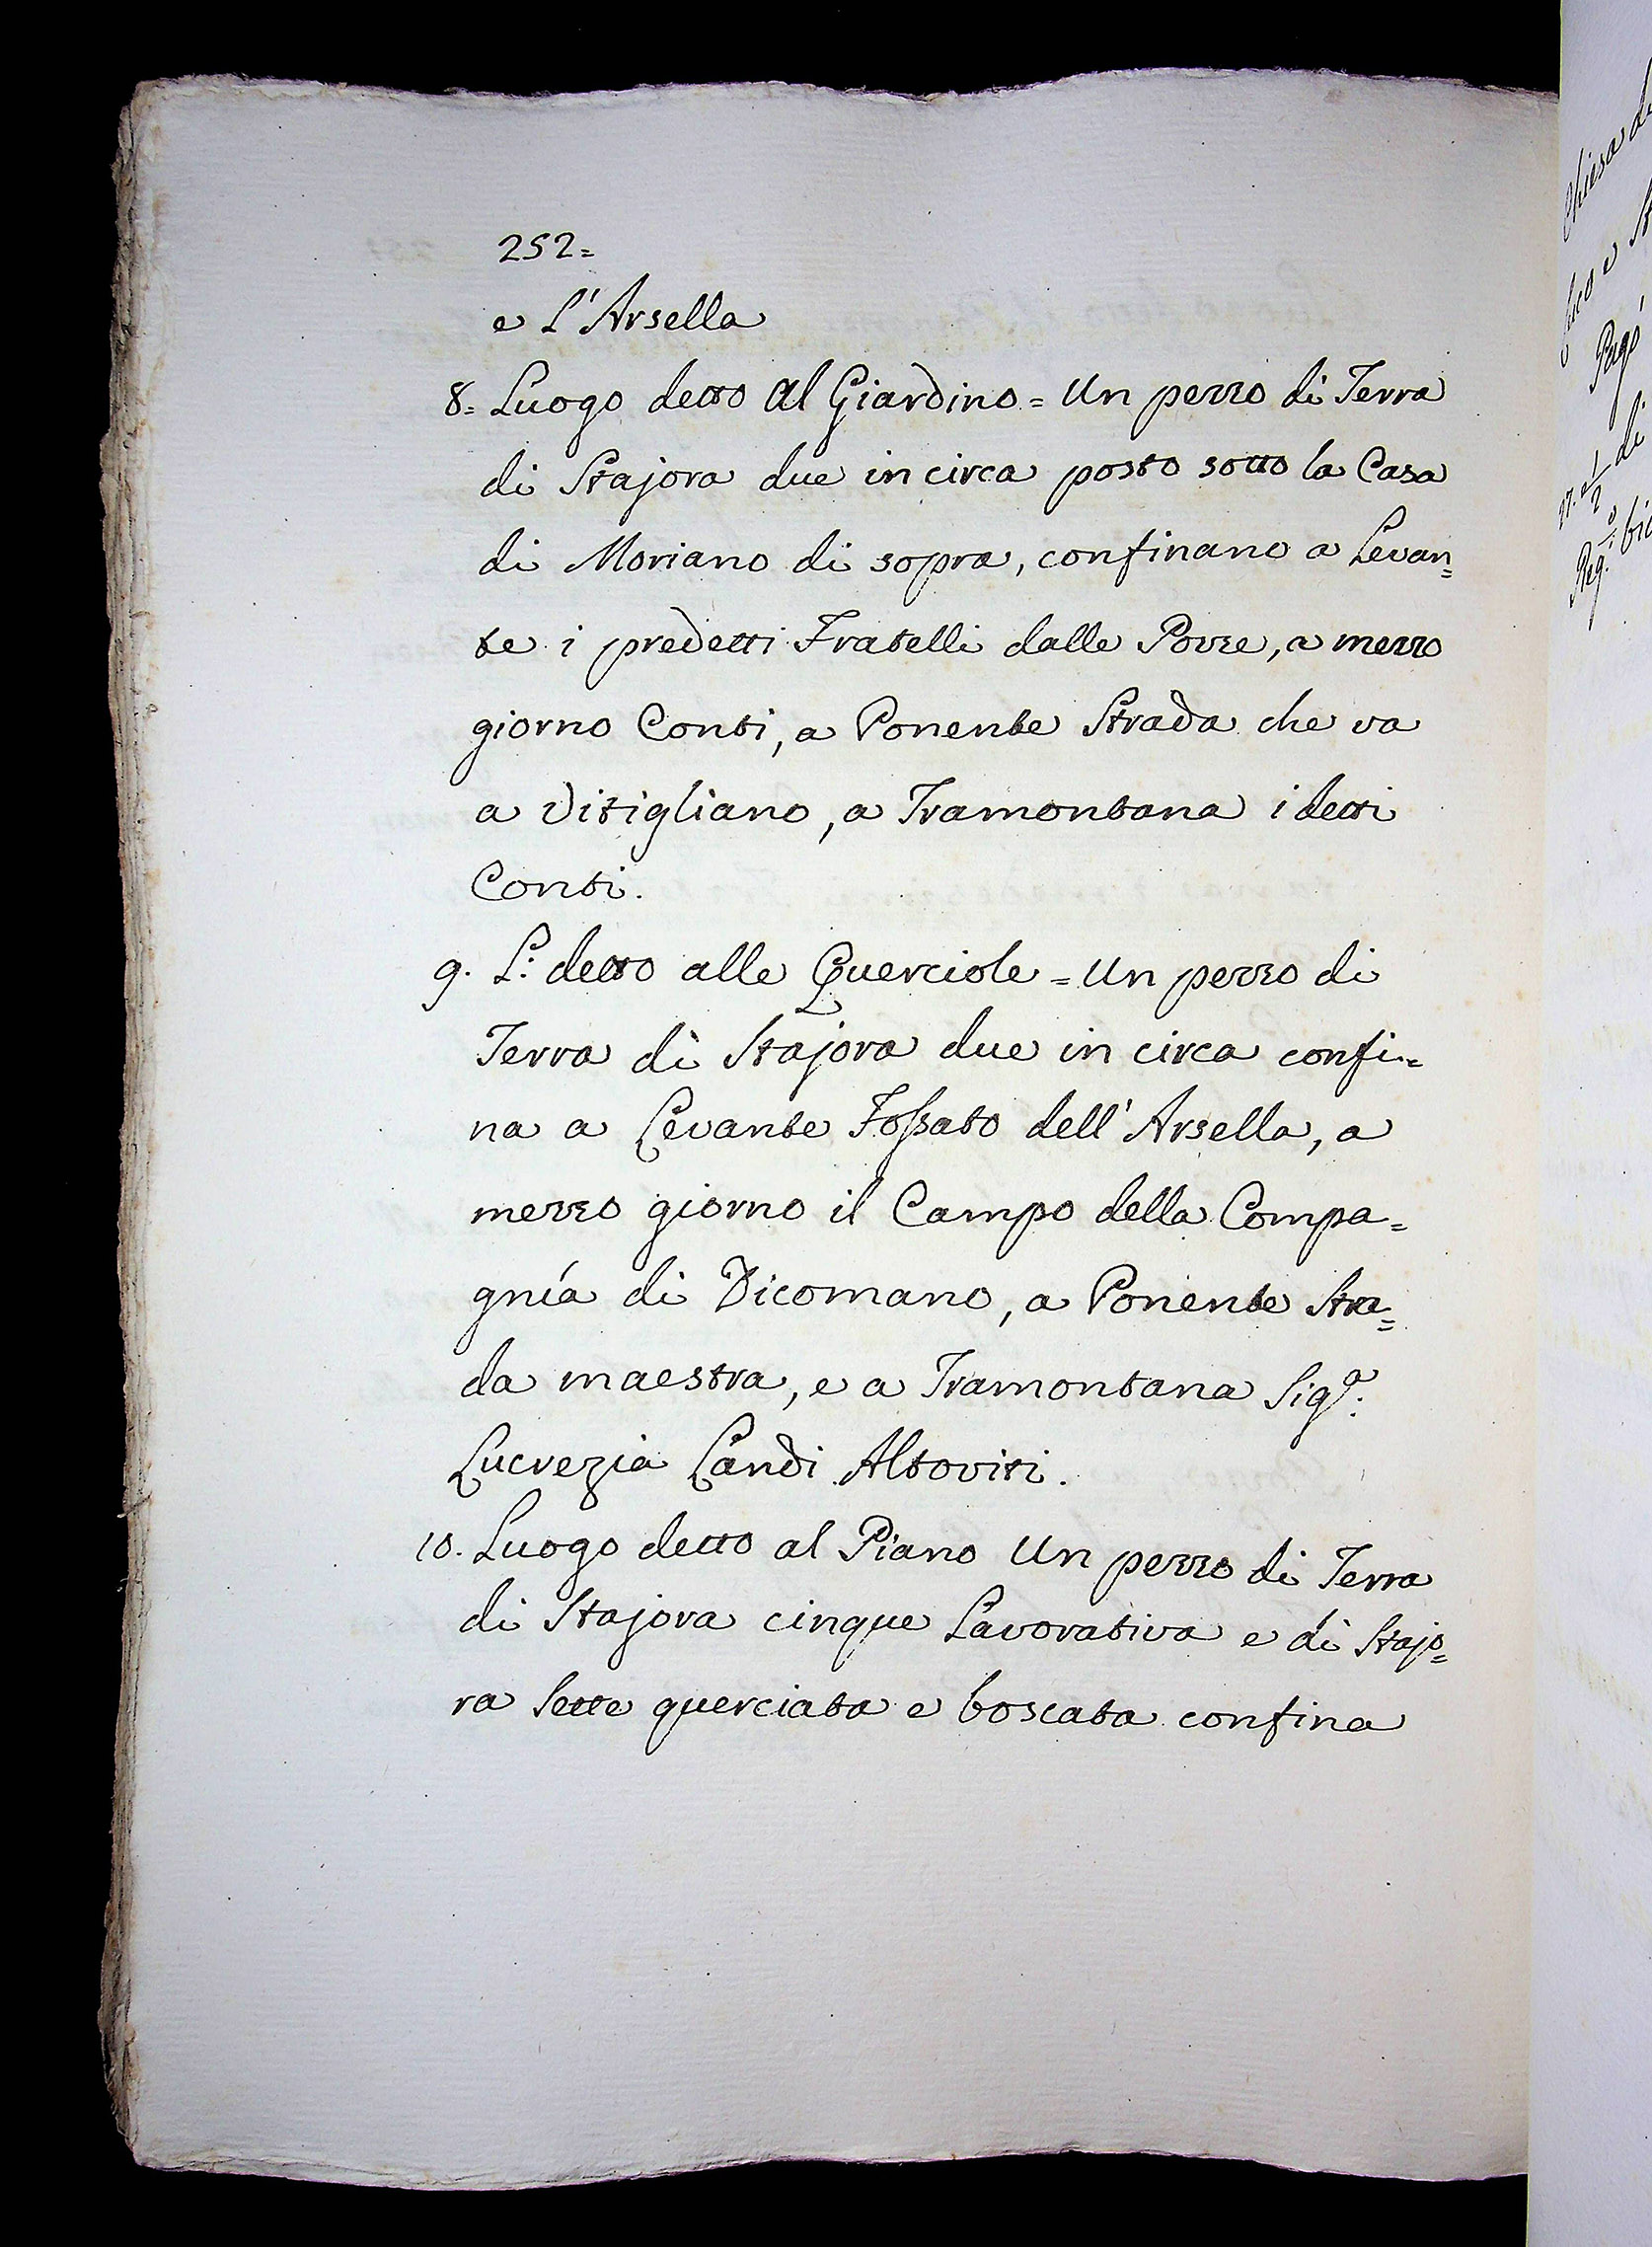 252=
e L'Arsella
8= Luogo detto al Giardino = Un pezzo di Terra
di Stajora due in circa posto sotto la Casa
di Moriano di sopra, confinano a Levan=
te i predetti Fratelli dalle Pozze, a mezzo
giorno Conti, a Ponente Strada che va
a Vitigliano, a Tramontana i detti
Conti.
9. L: detto alle Querciole = Un pezzo di
Terra di Stajora due in circa confi=
na a Levante Fossato dell'Arsella, a
mezzo giorno il Campo della Compa=
gnía di Dicomano, a Ponente Stra=
da maestra, e a Tramontana Sig.a:
Lucrezia Landi Altoviti.
10. Luogo detto al Piano Un pezzo di Terra
di Stajora cinque Lavorativa e di Stajo=
ra Sette querciata e boscata confina
Chiesa
Pagò
di